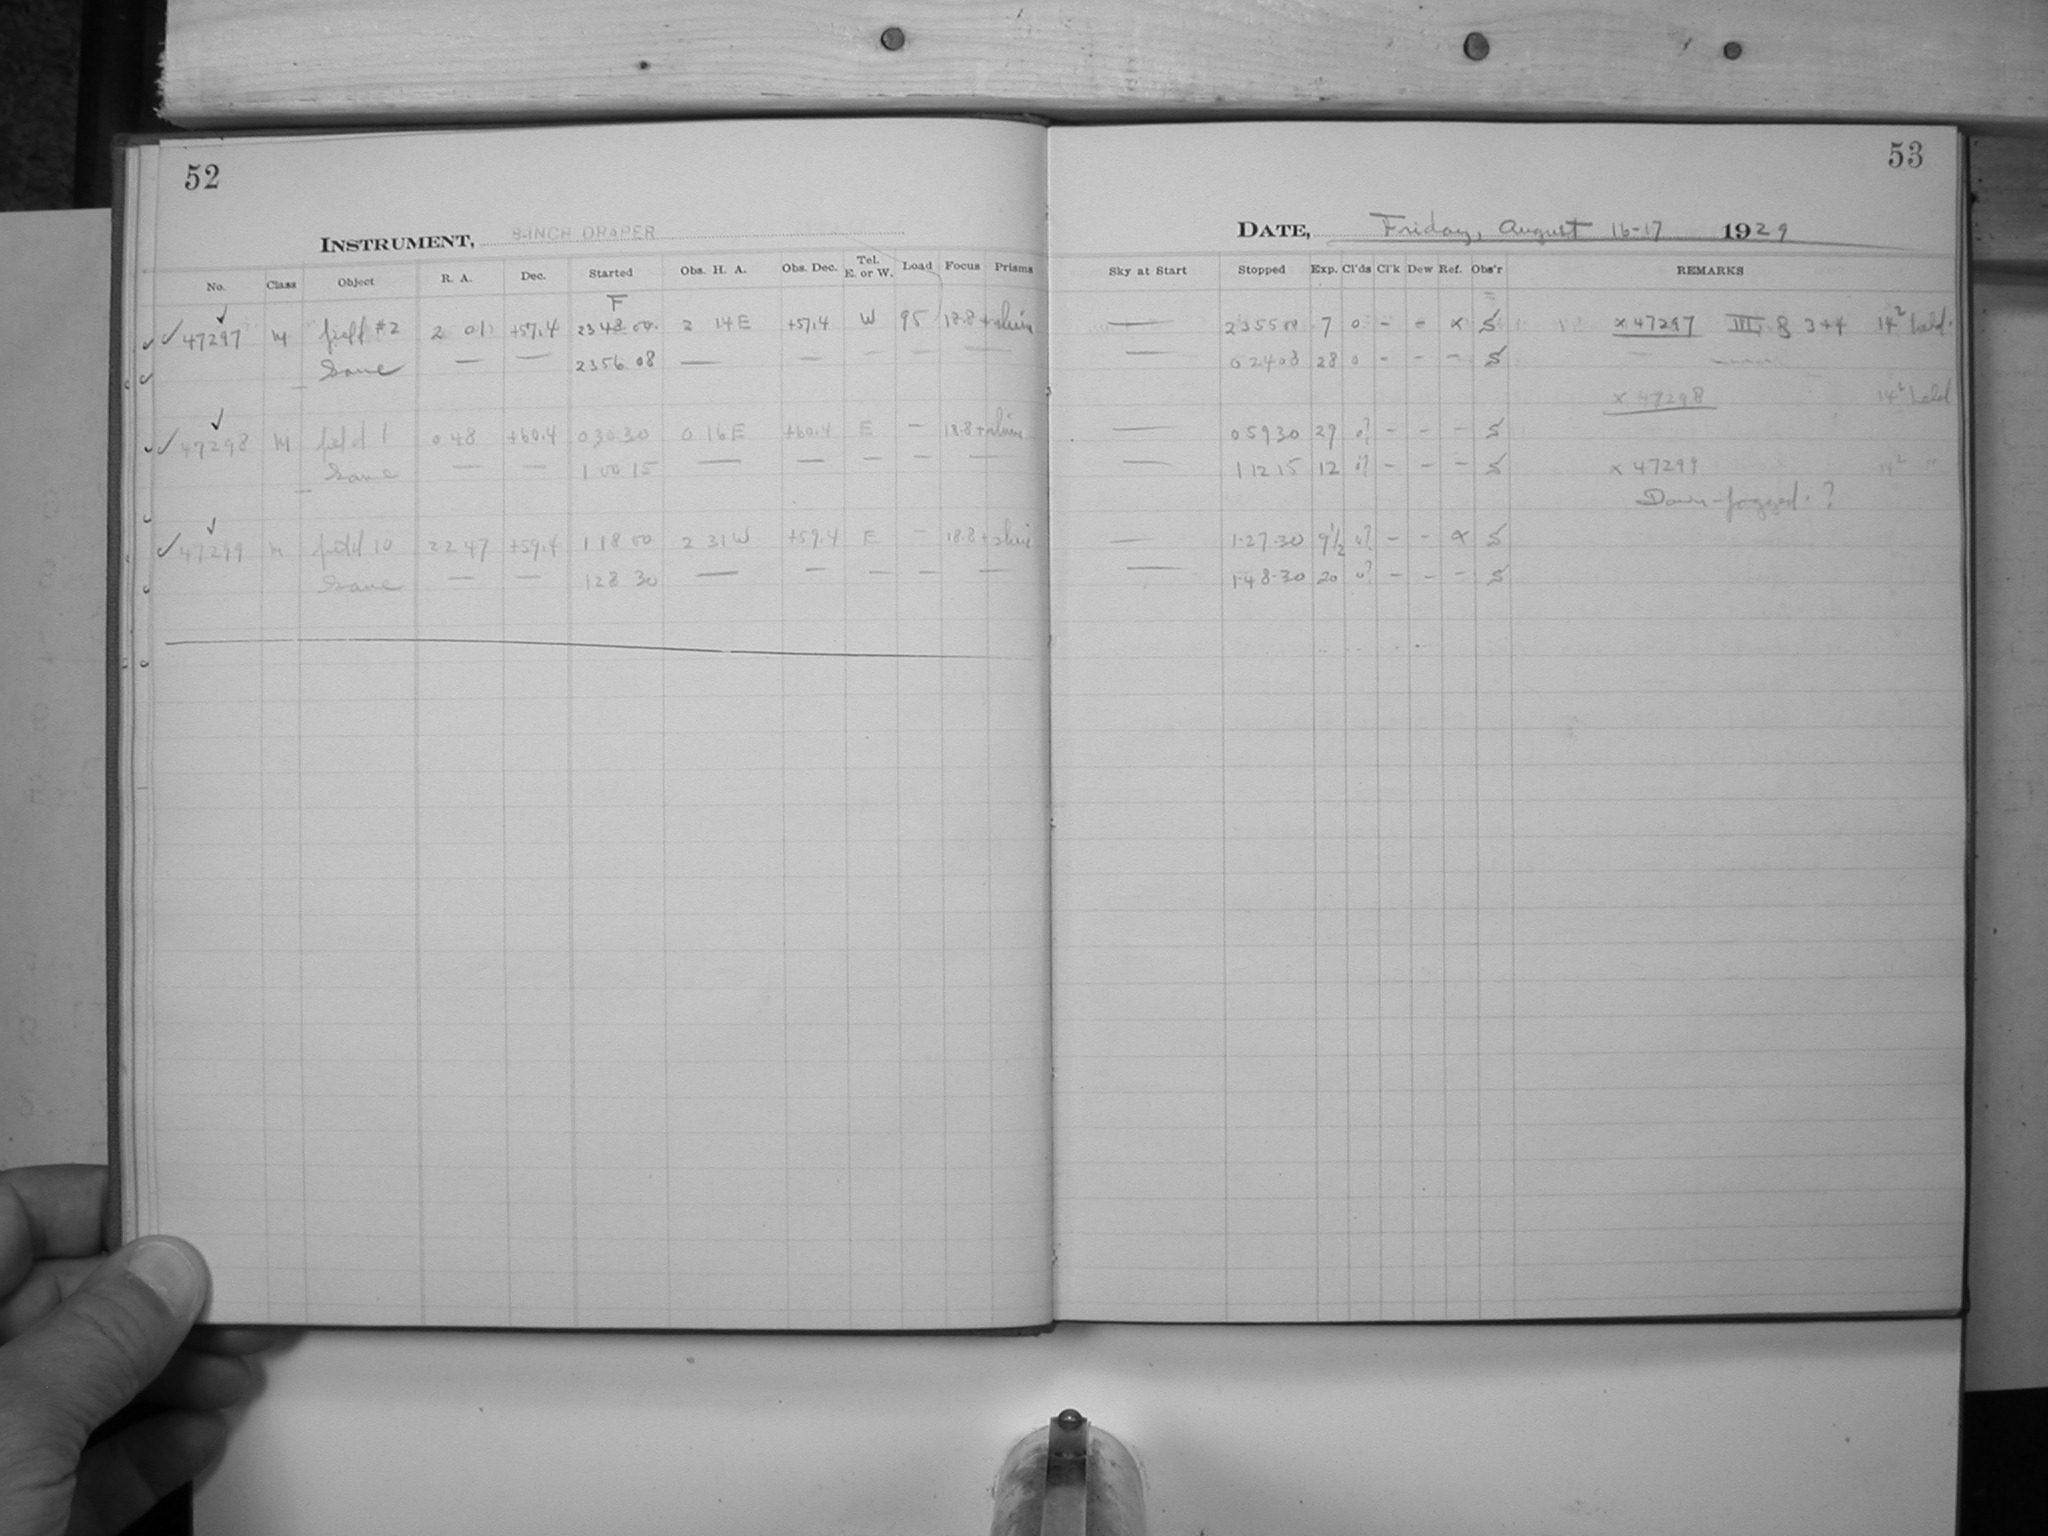 52
INSTRUMENT, 8-INCH DRAPER
No. Class Object R. A. Dec. Started Obs. H. A. Obs. Dec. Tel. E. or W. Load Focus Prisms
F
47297 M field #2 2 01 +57.4 23 48 00 2 14 E +57.4 W 95 18.8+
Same — — 23 56 08 — — — — —
47298 M field 1 0 48 +60.4 0 30 30 0 16 E +60.4 E — 18.8+
Same — — 1 00 15 — — — — —
47299 M field 10 22 47 +59.4 1 18 00 2 31 W +59.4 E — 18.8+
Same — — 1 28 30 — — — — —
53
DATE, Friday, August 16-17 1929
Sky at Start Stopped Exp. Cl'ds Cl'k Dew Ref. Obs'r REMARKS
— 23 55 00 7 0 - - x S x 47297 III, 8 3+4 14² held.
— 0 24 08 28 0 - - - S
x 47298 14² held
— 0 59 30 29 0? - - - S
— 1 12 15 12 0? - - - S x 47299 14² "
Dawn-fogged. ?
— 1-27-30 9½ 0? - - x S
— 1-48-30 20 0? - - - S